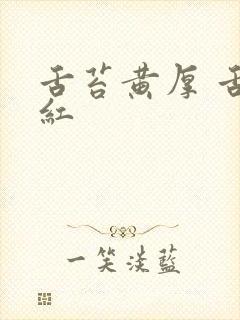 舌苔黄厚 舌
紅
一笑淡藍